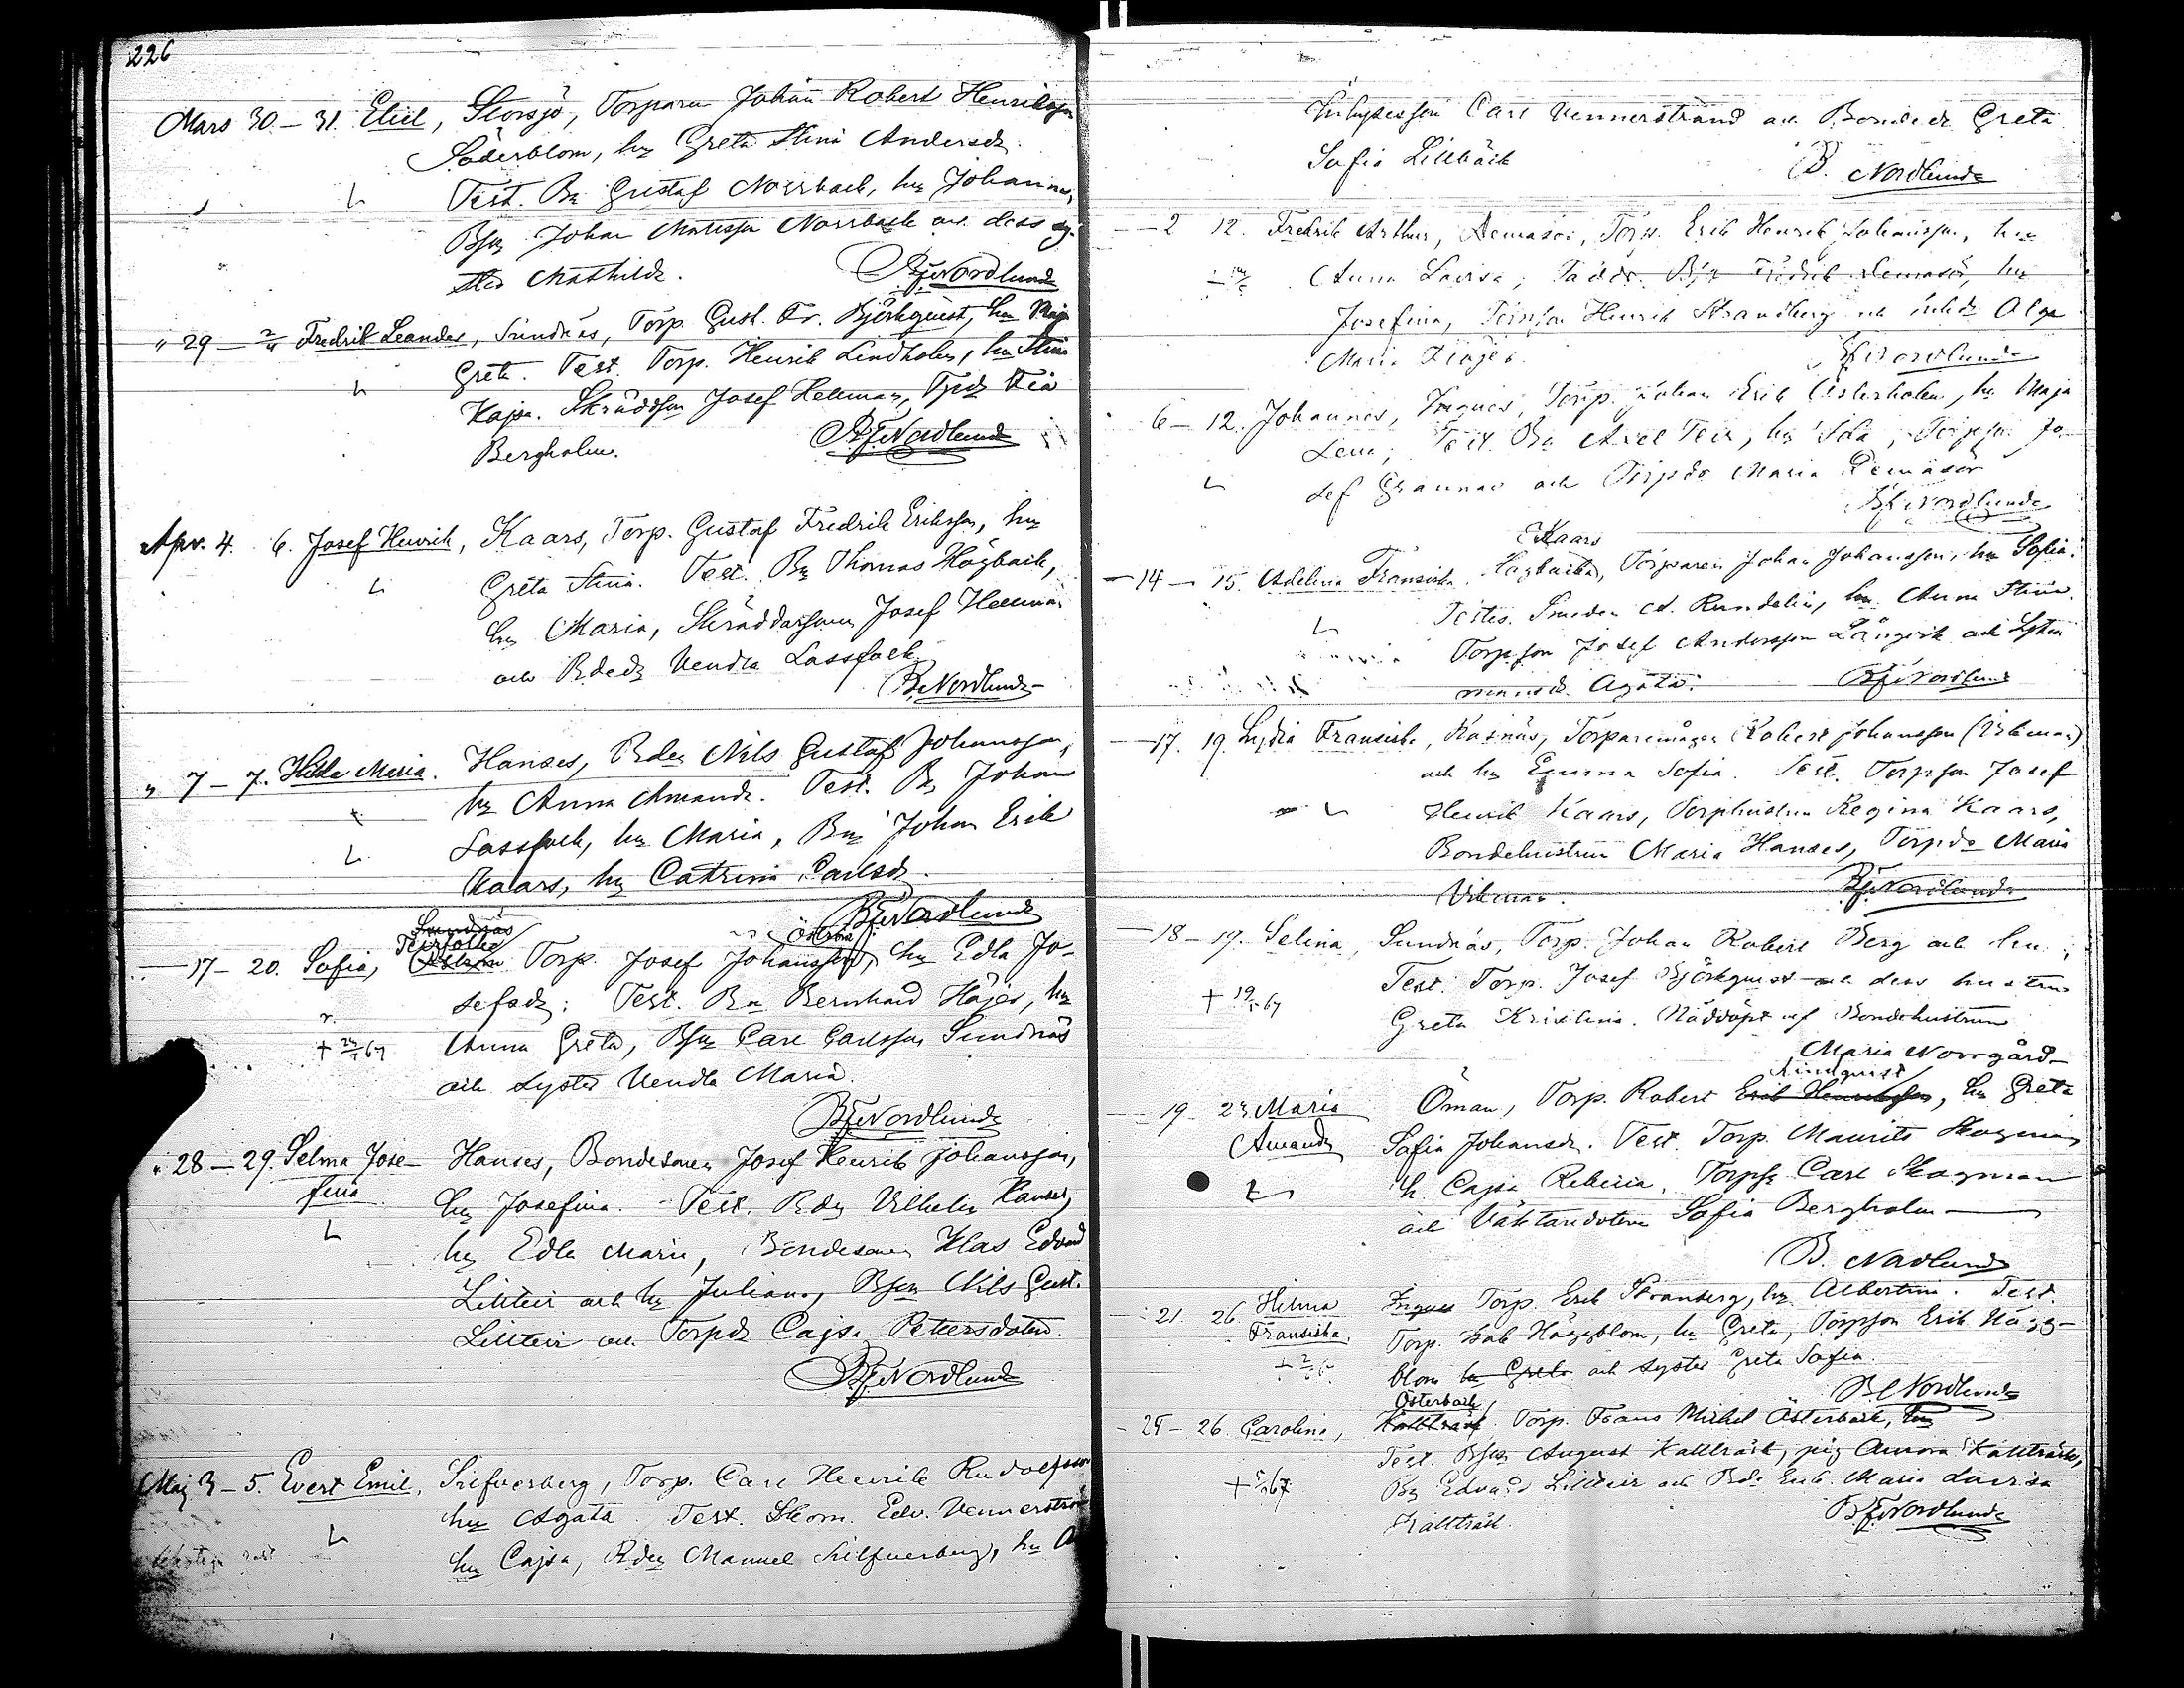 226
Mars 30 – 31. Eliel, Storsjö, Torparen Johan Robert Henriksson
Söderblom, hu Greta Stina Andersd.
Test. Bn Gustaf Norrback, hu Johanna,
Bsn Johan Matsson Norrback och dess sy-
ster Mathilda. BfNordlund
" 29 – 2/4 Fredrik Leander, Sundnäs, Torp. Gust. Fr. Björkquist, hu Maja
Greta. Test. Torp. Henrik Lindholm, hu Stina
Kajsa. Skräddson Josef Hellman, Tpd Fia
Bergholm. BfNordlund
Apr. 4. 6. Josef Henrik, Kaars, Torp. Gustaf Fredrik Eriksson, hu
Greta Stina. Test. Bn Thomas Högback,
hu Maria, Skräddaresonen Josef Hellman
och Bded Vendla Lassfolk
BfNordlund
" 7 – 7. Hilda Maria. Hanses, Bden Nils Gustaf Johansson,
hu Anna Amanda. Test. Bn Johan
Lassfolk, hu Maria, Bn Johan Erik
Kaars, hu Catrina Carlsd.
BfNordlund
Sundnäs
Teirfolk Östman
– 17 – 20. Sofia, Torp. Josef Johansson, hu Edla Jo-
sefsd; Test. Bn Bernhard Höjer, hu
Anna Greta, Bsn Carl Carlsson Sundnäs
och syster Vendla Maria.
BfNordlund
" 28 – 29. Selma Jose- Hanses, Bondesonen Josef Henrik Johansson,
fina hu Josefina. Test. Bdn Vilhelm Hanses,
hu Edla Maria, Bondesonen Klas Edvard
Lillteir och hu Juliana, Bsn Nils Gust.
Lillteir och Torpd Cajsa Pettersdotter.
BfNordlund
Maj 3 – 5. Evert Emil, Silfverberg, Torp. Carl Henrik Rudolfsson
hu Agata. Test. Skom. Edv. Vennerström
hu Cajsa, Bden Manuel Silfverberg, hu
Carl Vennerstrand och Bonded Greta
Sofia Lillbäck B. Nordlund
– 2 12. Fredrik Arthur, Remasör, Torp. Erik Henrik Johansson, hu
Anna Lovisa; Bsn Fredrik Remasör, hu
Josefina, Torpson Henrik Strandberg och Olga
Maria Höjer BfNordlund
6 – 12. Johannes, Ingues, Torp. Johan Erik Österholm, hu Maja
Lena; Test. Bn Axel Teir, hu Ida, Torpson Jo-
sef Grannas och Torpdo Maria Remasör
BfNordlund
Kaars
– 14 – 15. Adelina Fransiska, Högbacka, Torparen Johan Johansson, hu Sofia.
Testes. Smeden A. Rundelin, hu Anna Stina.
Torpson Josef Andersson Långvik och
Agata. BfNordlund
– 17. 19. Lydia Fransiska, Rosnäs, Torparemågen Robert Johansson (Vikman)
och hu Emma Sofia. Test. Torpson Josef
Henrik Kaars, Torphustrun Regina Kaars,
Bondehustrun Maria Hanses, Torpdo Maria
Vikman. BfNordlund
– 18 – 19. Selina, Sundnäs, Torp. Johan Robert Berg och hu
Test. Torp. Josef Björkquist och dess hustru
+ 19/5 67 Greta Kristina. Nöddöpt af Bondehustrun
Maria Norrgård
Lindquist
– 19 – 23. Maria Öman, Torp. Robert Erik Henriksson, hu Greta
Amanda Sofia Johansd. Test. Torp. Maurits Skogman
h. Cajsa Rebecca, Torpsn Carl Skogman
och Väktaredottern Sofia Bergholm
B. Nordlund
21. 26. Hilma Ingues Torp. Erik Stranberg, hu Albertina. Test.
Fransiska. Torp. Isak Häggblom, hu Greta, Torpson Erik Hägg-
blom hu Greta och syster Greta Sofia.
BfNordlund
Österback
– 25 – 26. Carolina, Kallträsk, Torp. Frans Mickel Österback, hu
Test. Bsn August Kallträsk, pig Aurora Kallträsk,
+ 67 Bn Edvard Lillteir och Maria Lovisa
Kallträsk. BfNordlund